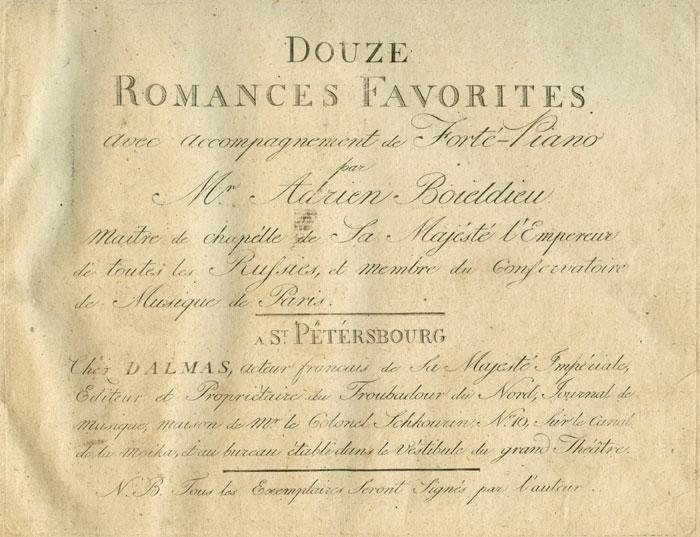 DOUZE
ROMANCES FAVORITES
avec accompagnement de Forté-Piano
par
Mr. Adrien Boieldieu
Maitre de chapélle de Sa Majésté l'Empereur
de toutes les Russies, et membre du Conservatoire
de Musique de Paris.
A ST. PÊTÉRSBOURG
Chés DALMAS, acteur français de Sa Majesté Impériale,
Editeur et Propriétaire du Troubadour du Nord, Journal de
musique, maison de Mr. le Colonel Schkourin: No. 10, Sur le Canal
de la Moika, et au bureau établi dans le Véstibule du grand Théâtre.
N. B. Tous les Exemplaires Seront Signés par l'auteur.